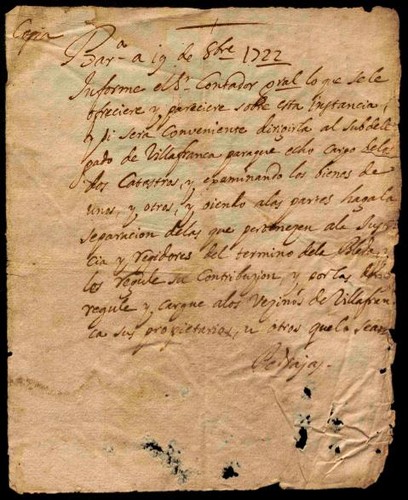 Copia
Bar.ª a 19 de 8bre 1722
Informe el S.r Contador pral lo q.e se le
ofreciere y pareciere sobre esta Instancia,
o si sera Conveniente dirigirla al subdele
gado de Villafranca paraque el ho Cargo de lo
dos Catastros, y examinando los bienes de
unos, y otros, y oiendo alas partes haga la
separacion delas que pertenezen ale Jus
cia y regidores del termino dele
les regule su Contribuzion, y por las
regule y cargue alos Vezinos de Villafran
ca sus proprietarios, u otros que lo sean
Pedrajas.